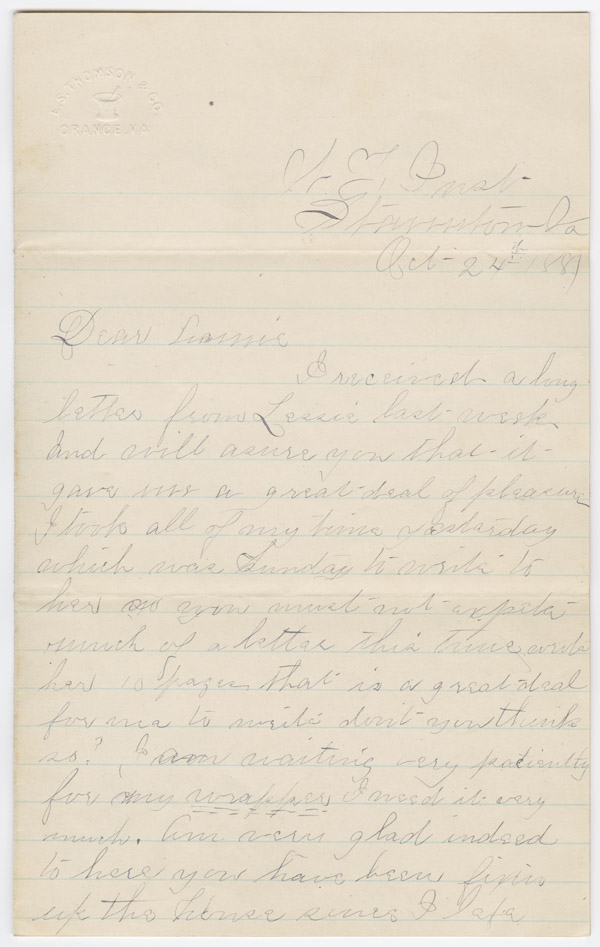 E. S. THOMSON & CO.
ORANGE, VA
Inst
Staunton Va
Oct 24th 1887
Dear
I received a long
letter from Lessie last week
and will asure you that it
gave me a great deal of pleasure
I took all of my time yesterday
which was Sunday to write to
her so you must not expete
much of a letter this time, wrote
her 10 pages, that is a great deal
for me to write don't you think
so? I am waiting very patiently
for my wrapper I need it very
much. Am very glad indeed
to here you have been fixin
up the house since I